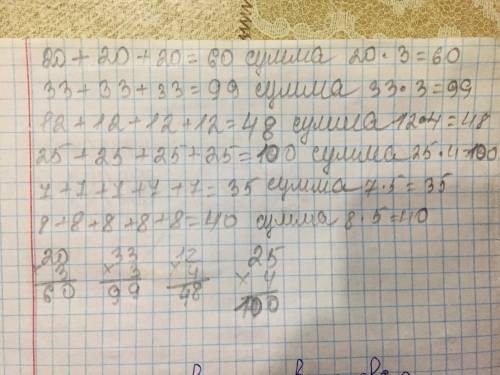 20 + 20 + 20 = 60 сумма 20 · 3 = 60
33 + 33 + 33 = 99 сумма 33 · 3 = 99
12 + 12 + 12 + 12 = 48 сумма 12 · 4 = 48
25 + 25 + 25 + 25 = 100 сумма 25 · 4 = 100
7 + 7 + 7 + 7 + 7 = 35 сумма 7 · 5 = 35
8 + 8 + 8 + 8 + 8 = 40 сумма 8 · 5 = 40
20 33 12 25
× 3 × 3 × 4 × 4
60 99 48 100